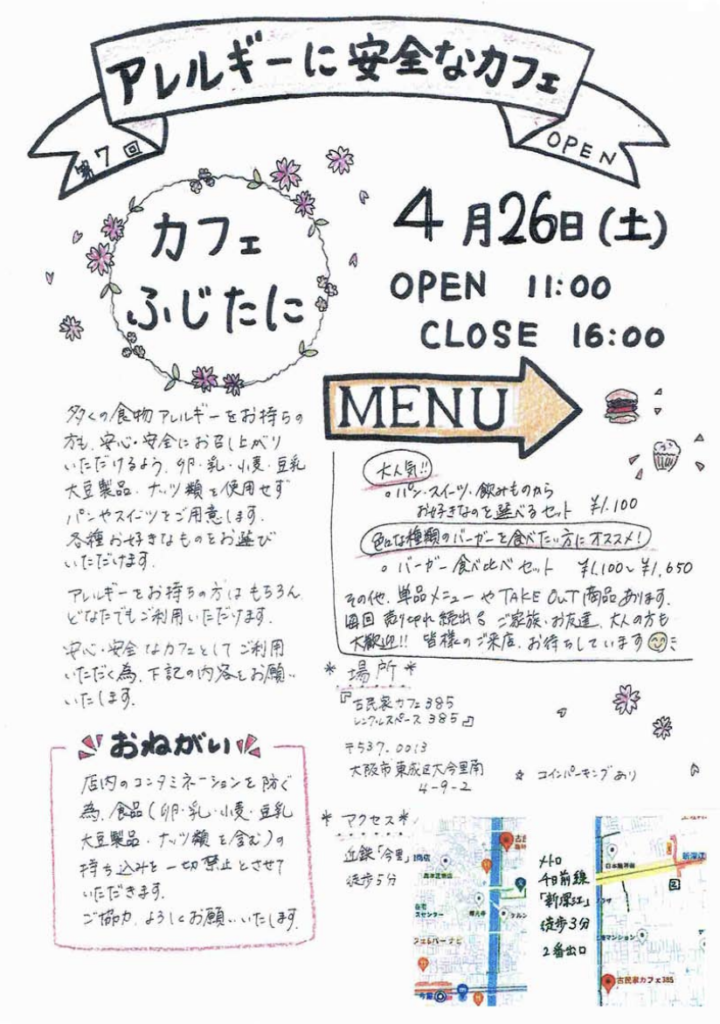 アレルギーに安全なカフェ
第7回
OPEN
カフェ
ふじたに
4月26日(土)
OPEN 11:00
CLOSE 16:00
MENU
多くの食物アレルギーをお持ちの
方も、安心・安全にお召し上がり
いただけるよう、卵・乳・小麦・豆乳
大豆製品・ナッツ類を使用せず
パンやスイーツをご用意します。
各種お好きなものをお選び
いただけます。
アレルギーをお持ちの方はもちろん
どなたでもご利用いただけます。
安心・安全なカフェとしてご利用
いただく為、下記の内容をお願い
いたします。
大人気!!
○パン・スイーツ・飲みものから
お好きなのを選べるセット ¥1,100
色んな種類のバーガーを食べたい方にオススメ!
○バーガー食べ比べセット ¥1,100~¥1,650
その他、単品メニューやTAKE OUT商品あります。
毎回売り切れ続出る ご家族、お友達、大人の方も
大歓迎!! 皆様のご来店、お待ちしています
おねがい
店内のコンタミネーションを防ぐ
為、食品(卵・乳・小麦・豆乳
大豆製品・ナッツ類を含む)の
持ち込みを一切禁止とさせて
いただきます。
ご協力、よろしくお願いいたします。
*場所*
『古民家カフェ385
レンタルスペース385』
〒537-0013
大阪市東成区大今里南
4-9-2
☆ コインパーキングあり
*アクセス*
近鉄「今里」
徒歩5分
メトロ
千日前線
「新深江」
徒歩3分
2番出口
新深江
古民家カフェ385